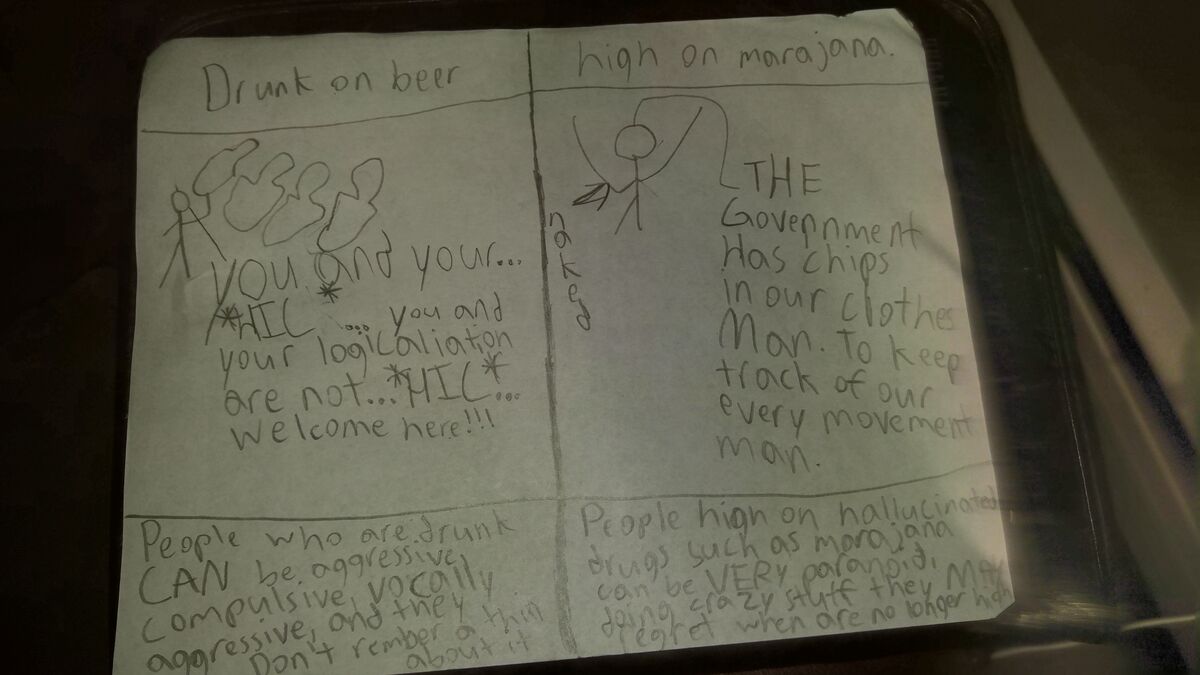 Drunk on beer
you and your...
*HIC* ... you and
your logicaliation
are not...*HIC*...
welcome here!!!
People who are drunk
CAN be aggressive,
compulsive, vocally
aggressive, and they
Don't rember a thin
about it
high on marajana.
naked
THE
Government
Has chips
in our clothes
Man. To keep
track of our
every movement
man.
People high on hallucinated
drugs such as marajana
can be VERY paranoid,
doing crazy stuff they MAY
regret when are no longer high